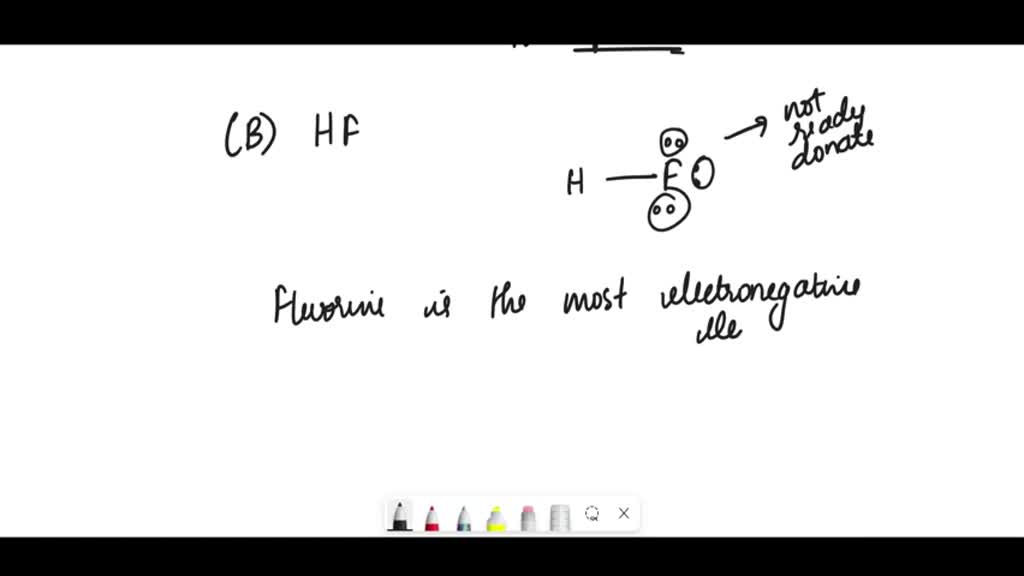 (B) HF
not
ready
donate
H — F
Fluorine is the most electronegative
ele